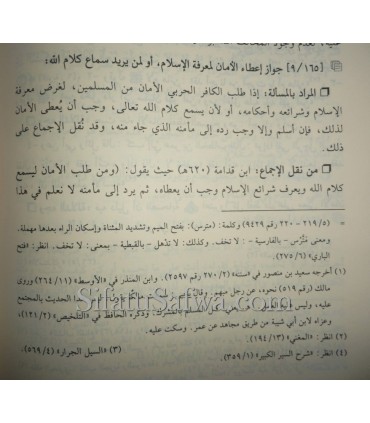 [٩/١٦٥] جواز إعطاء الأمان لمعرفة الإسلام، أو لمن يريد سماع كلام الله:
المراد بالمسألة: إذا طلب الكافر الحربي الأمان من المسلمين، لغرض معرفة
الإسلام وشرائعه وأحكامه، أو لأن يسمع كلام الله تعالى، وجب أن يُعطى الأمان
لذلك، فإن أسلم وإلا وجب رده إلى مأمنه الذي جاء منه، وقد نُقل الإجماع على
ذلك.
من نقل الإجماع: ابن قدامة (٦٢٠هـ) حيث يقول: (ومن طلب الأمان ليسمع
كلام الله ويعرف شرائع الإسلام وجب أن يعطاه، ثم يرد إلى مأمنه لا نعلم في هذا
= (٥/ ٢١٩ - ٢٢٠ رقم ٩٤٢٩) وكلمة: (مترس): بفتح الميم وتشديد المثناة وإسكان الراء بعدها مهملة.
ومعنى مَتَّرْس - بالفارسية -: لا تخف. وكذلك: لا تذهل - بالقبطية - بمعنى: لا تخف. انظر: «فتح
الباري» (٦/ ٢٧٥).
(١) أخرجه سعيد بن منصور في «سننه» (٢/ ٢٧٠ رقم ٢٥٩٧). وابن المنذر في «الأوسط» (١١/ ٢٦٤) وروى
مالك (رقم ٥١٩) نحوه، عن رجل منهم. وقال مالك: هذا الحديث بالمجتمع
عليه، وليس قتل المسلم بالمشرك. وذكره الحافظ في «التلخيص» (٢/ ١٢١)،
وعزاه لابن أبي شيبة من طريق مجاهد عن عمر. وسكت عليه.
(٢) انظر: «المغني» (١٣/ ١٩٤).
(٣) «السيل الجرار» (٤/ ٥٦٩).
(٤) انظر: «شرح السير الكبير» (١/ ٣٥٩).
SifatuSafwa.com